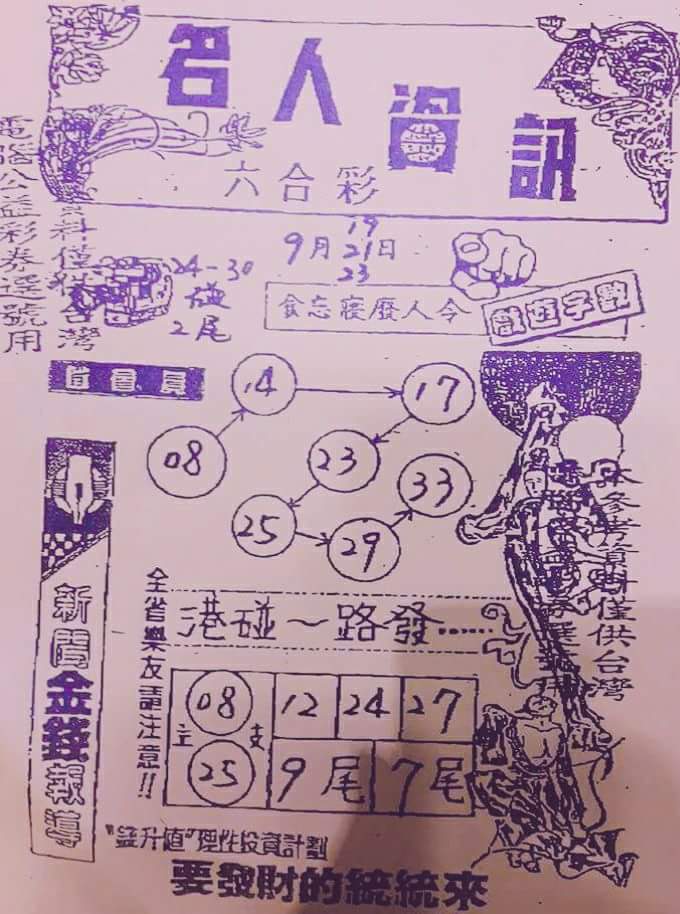 名人資訊
六合彩
電腦公益彩券選號用
資料僅供台灣
19
9月21日
23
24-30
碰
2尾
食忘寢廢人令
戲遊字數
14
17
08
23
33
25
29
新聞金錢報導
本參考資料僅供台灣
全省樂友請注意!!
港碰～路發……
主 08 支 12 24 27
25 9尾 7尾
"錢升值"理性投資計劃
要發財的統統來